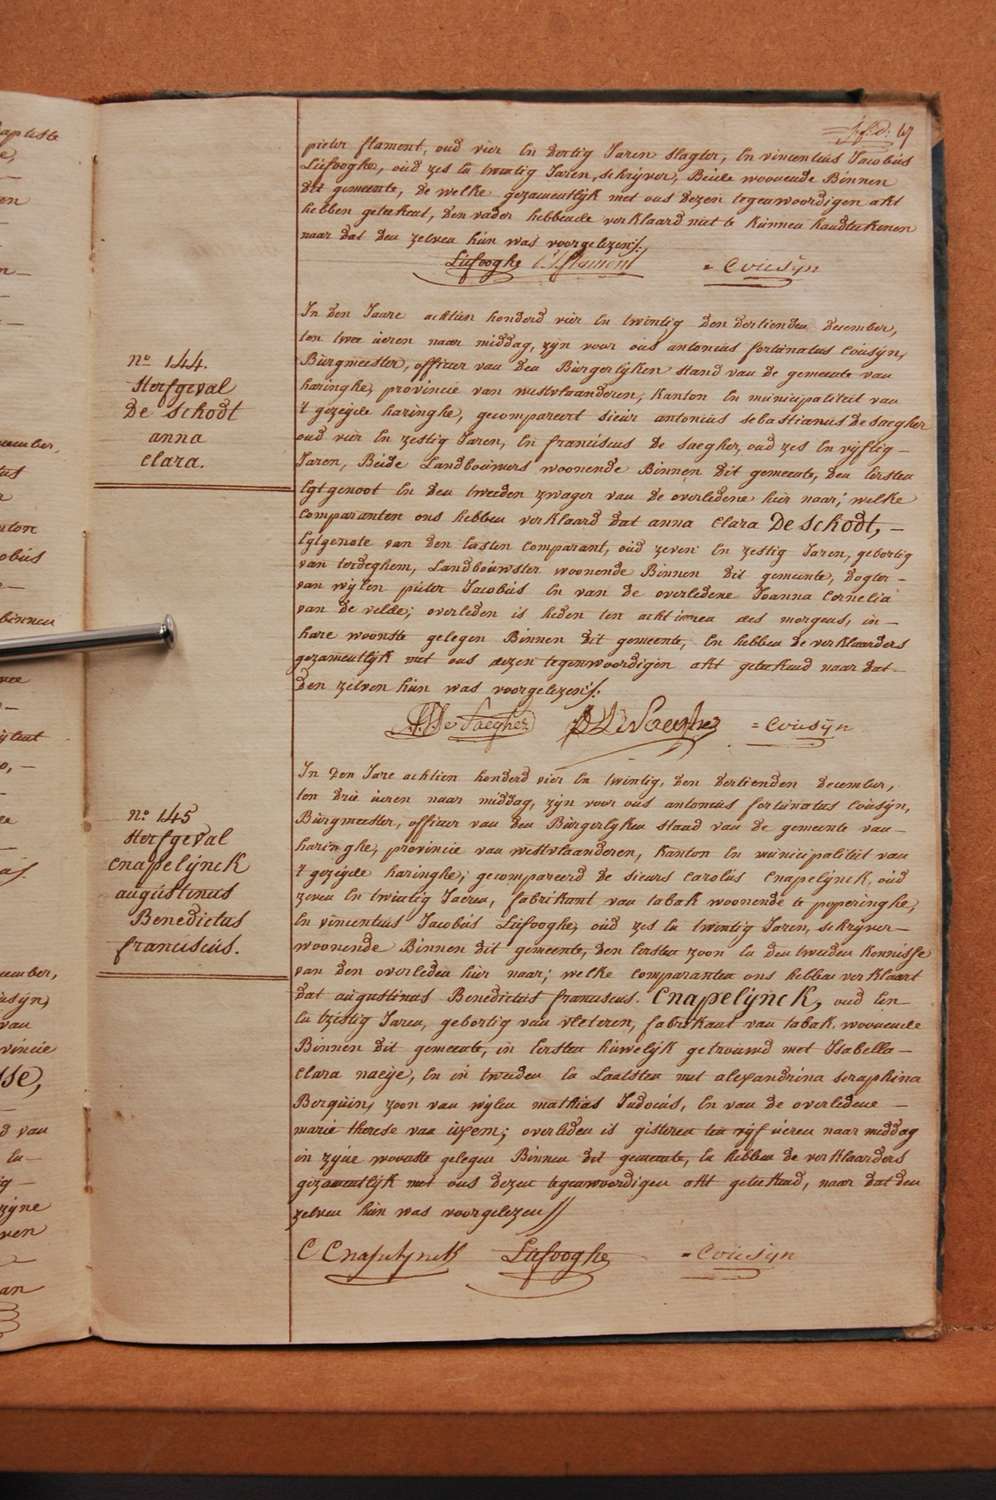 pieter flament, oud vier en dertig Jaren slagter, en vincentius Jacobus
Liefooghe, oud zes en twintig Jaren, schrijver, Beide woonende Binnen
dit gemeente, de welke gezamentlijk met ons dezen tegenwoordigen akt
hebben geteekent, den vader hebbende verklaard niet te kunnen handteekenen
naar dat den zelven hun was voorgelezen/.
Liefooghe flament = Cousijn
n.o 144.
Sterfgeval
De Schodt
anna
clara.
In den Jaare achtien honderd vier en twintig den dertienden december,
ten twee ueren naar middag, zijn voor ons antonius fortunatus Cousijn,
Burgmeester, officier van den Burgerlijken stand van de gemeente van
haringhe, provincie van westvlaanderen, kanton en municipaliteit van
't gezeijde haringhe, gecompareert sieur antonius sebastianus de saegher
oud vier en zestig Jaren, en franciscus de saegher, oud zes en vijftig
Jaren, Beide Landbouwers woonende Binnen dit gemeente, den eersten
Egtgenoot en den tweeden zwager van de overledene hier naar; welke
comparanten ons hebben verklaard dat anna clara De Schodt, —
Egtgenote van den eersten comparant, oud zeven en zestig Jaren, gebortig
van terdeghem, Landbouwster woonende Binnen dit gemeente, dogter
van wijlen pieter Jacobus en van de overledene Joanna Cornelia
van de velde; overleden is heden ten acht ueren des morgens, in
hare woonste gelegen Binnen dit gemeente, en hebben de verklaarders
gezamentlijk met ons dezen tegenwoordigen akt geteekend naar dat
den zelven hun was voorgelezen/.
De Saegher De Saegher = Cousijn
n.o 145
Sterfgeval
Cnapelijnck
augustinus
Benedictus
franciscus.
In den Jare achtien honderd vier en twintig, den dertienden december,
ten drie ueren naar middag, zijn voor ons antonius fortunatus Cousijn,
Burgmeester, officier van den Burgerlijken stand van de gemeente van
haringhe, provincie van westvlaanderen, kanton en municipaliteit van
't gezeijde haringhe; gecompareerd de sieurs Carolus Cnapelijnck, oud
zeven en twintig Jaeren, fabrikant van tabak woonende te poperinghe,
en vincentius Jacobus Liefooghe, oud zes en twintig Jaren, schrijver
woonende Binnen dit gemeente, den eersten zoon en den tweeden konnisse
van den overleden hier naar; welke comparanten ons hebben verklaart
dat augustinus Benedictus franciscus. Cnapelijnck, oud een
en tzestig Jaren, gebortig van vleteren, fabrikant van tabak. woonende
Binnen dit gemeente, in eersten huwelijk getrouwd met Isabella
clara naeije, en in tweeden en Laatsten met alexandrina seraphina
Berquin, zoon van wijlen mathias Judocus, en van de overledene
marie therese van uxem; overleden is gisteren ten vijf ueren naar middag
in zijne woonste gelegen Binnen dit gemeente, en hebben de verklaarders
gezamentlijk met ons dezen tegenwoordigen akt geteekend, naar dat den
zelven hun was voorgelezen//
C Cnapelynck Liefooghe = Cousijn